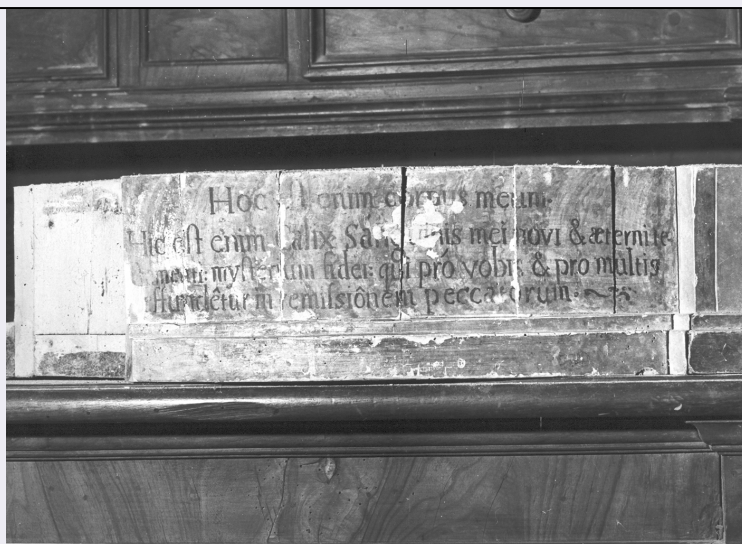 Hoc est enim corpus meum.
Hic est enim Calix Sanguinis mei novi & æterni te-
stamenti: mysterium fidei: qui pro vobis & pro multis
effundêtur in remissiônem peccatorum.